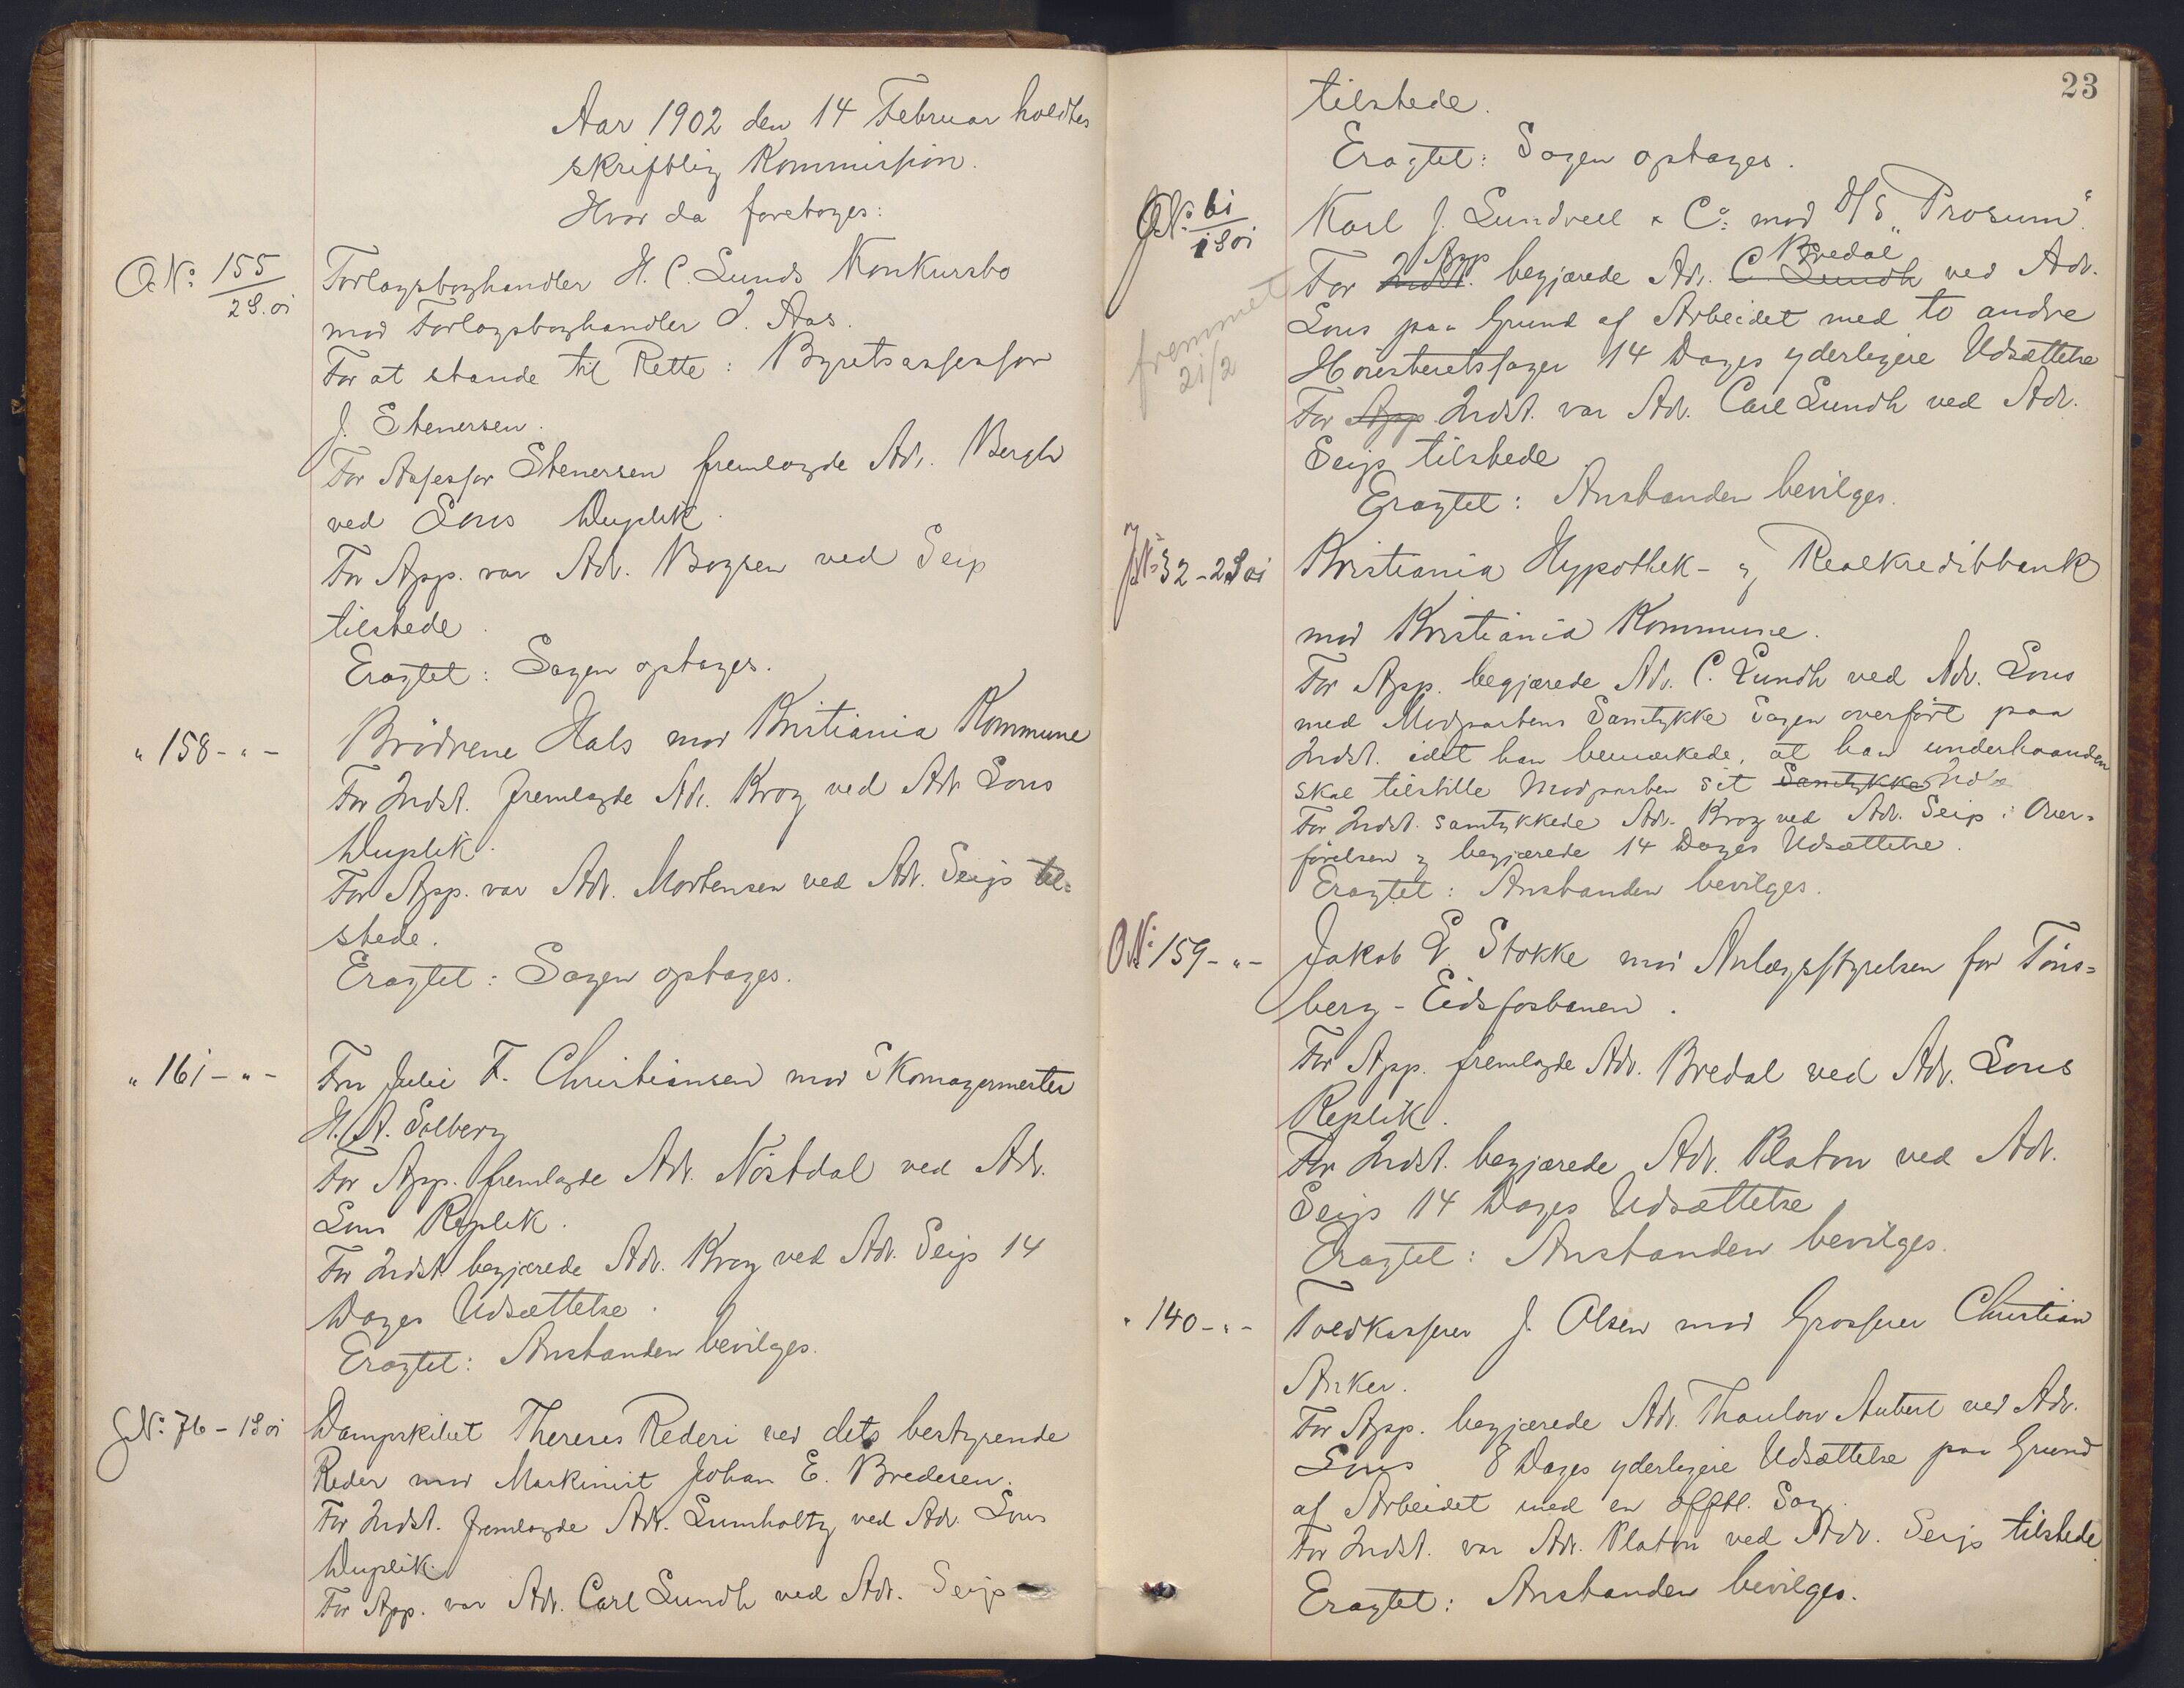 Aar 1902 den 14 Februar holdtes
skriftlig Kommission.
Hvor da foretoges:
O. No: 155
2 S. 01
Forlagsboghandler H. C. Lunds Konkursbo
mod Forlagsboghandler O. Aas.
For at stande til Rette: Byretsassessor
J. Stenersen.
For Assessor Stenersen fremlagde Adv. Bergh
ved Lous Duplik.
For App. var Adv. Boysen ved Seip
tilstede.
Eragtet: Sagen optages.
" 158 - " -
Brödrene Hals mod Kristiania Kommune
For Indst. fremlagde Adv. Krog ved Adv Lous
Duplik.
For App. var Adv. Mortensen ved Adv. Seip til=
stede.
Eragtet: Sagen optages.
" 161 - " -
Fru Julie F. Christiansen mod Skomagermester
H. A. Solberg
For App. fremlagde Adv. Nöstdal ved Adv.
Lous Replik.
For Indst. begjærede Adv. Krog ved Adv. Seip 14
Dages Udsættelse.
Eragtet: Anstanden bevilges.
J No: 76 - 1 S 01
Dampskibet Thereses Rederi ved dets bestyrende
Reder mod Maskinist Johan E. Bredesen.
For Indst. fremlagde Adv. Lumholtz ved Adv. Lous
Duplik.
For App. var Adv. Carl Lundh ved Adv. Seip
23
tilstede.
Eragtet: Sagen optages.
J No: 61
1 S 01
fremmet
21/2
Karl J. Lundvell & Co: mod D/S „Prosum“.
For Indst. App begjærede Adv. C. Lundh Bredal ved Adv.
Lous paa Grund af Arbeidet med to andre
Höiesteretssager 14 Dages yderligere Udsættelse
For App Indst. var Adv. Carl Lundh ved Adv.
Seip tilstede
Eragtet: Anstanden bevilges.
J No: 32 - 2 S 01
Kristiania Hypothek- og Realkreditbank
mod Kristiania Kommune.
For App. begjærede Adv. C. Lundh ved Adv. Lous
med Modpartens Samtykke Sagen overfört paa
Indst. idet han bemærkede, at han underhaanden
skal tilstille Modparten sit Samtykke
For Indst. samtykkede Adv. Krog ved Adv. Seip i Over=
förelsen og begjærede 14 Dages Udsættelse.
Eragtet: Anstanden bevilges.
O No: 159 - " -
Jakob L. Stokke mod Anlægsstyrelsen for Töns=
berg - Eidsfosbanen.
For App. fremlagde Adv. Bredal ved Adv. Lous
Replik.
For Indst. begjærede Adv. Platou ved Adv.
Seip 14 Dages Udsættelse
Eragtet: Anstanden bevilges.
" 140 - " -
Toldkasserer J. Olsen mod Grosserer Christian
Anker.
For App. begjærede Adv. Thaulow Aubert ved Adv.
Lous 8 Dages yderligere Udsættelse paa Grund
af Arbeidet med en offtl. Sag.
For Indst. var Adv. Platou ved Adv. Seip tilstede
Eragtet: Anstanden bevilges.